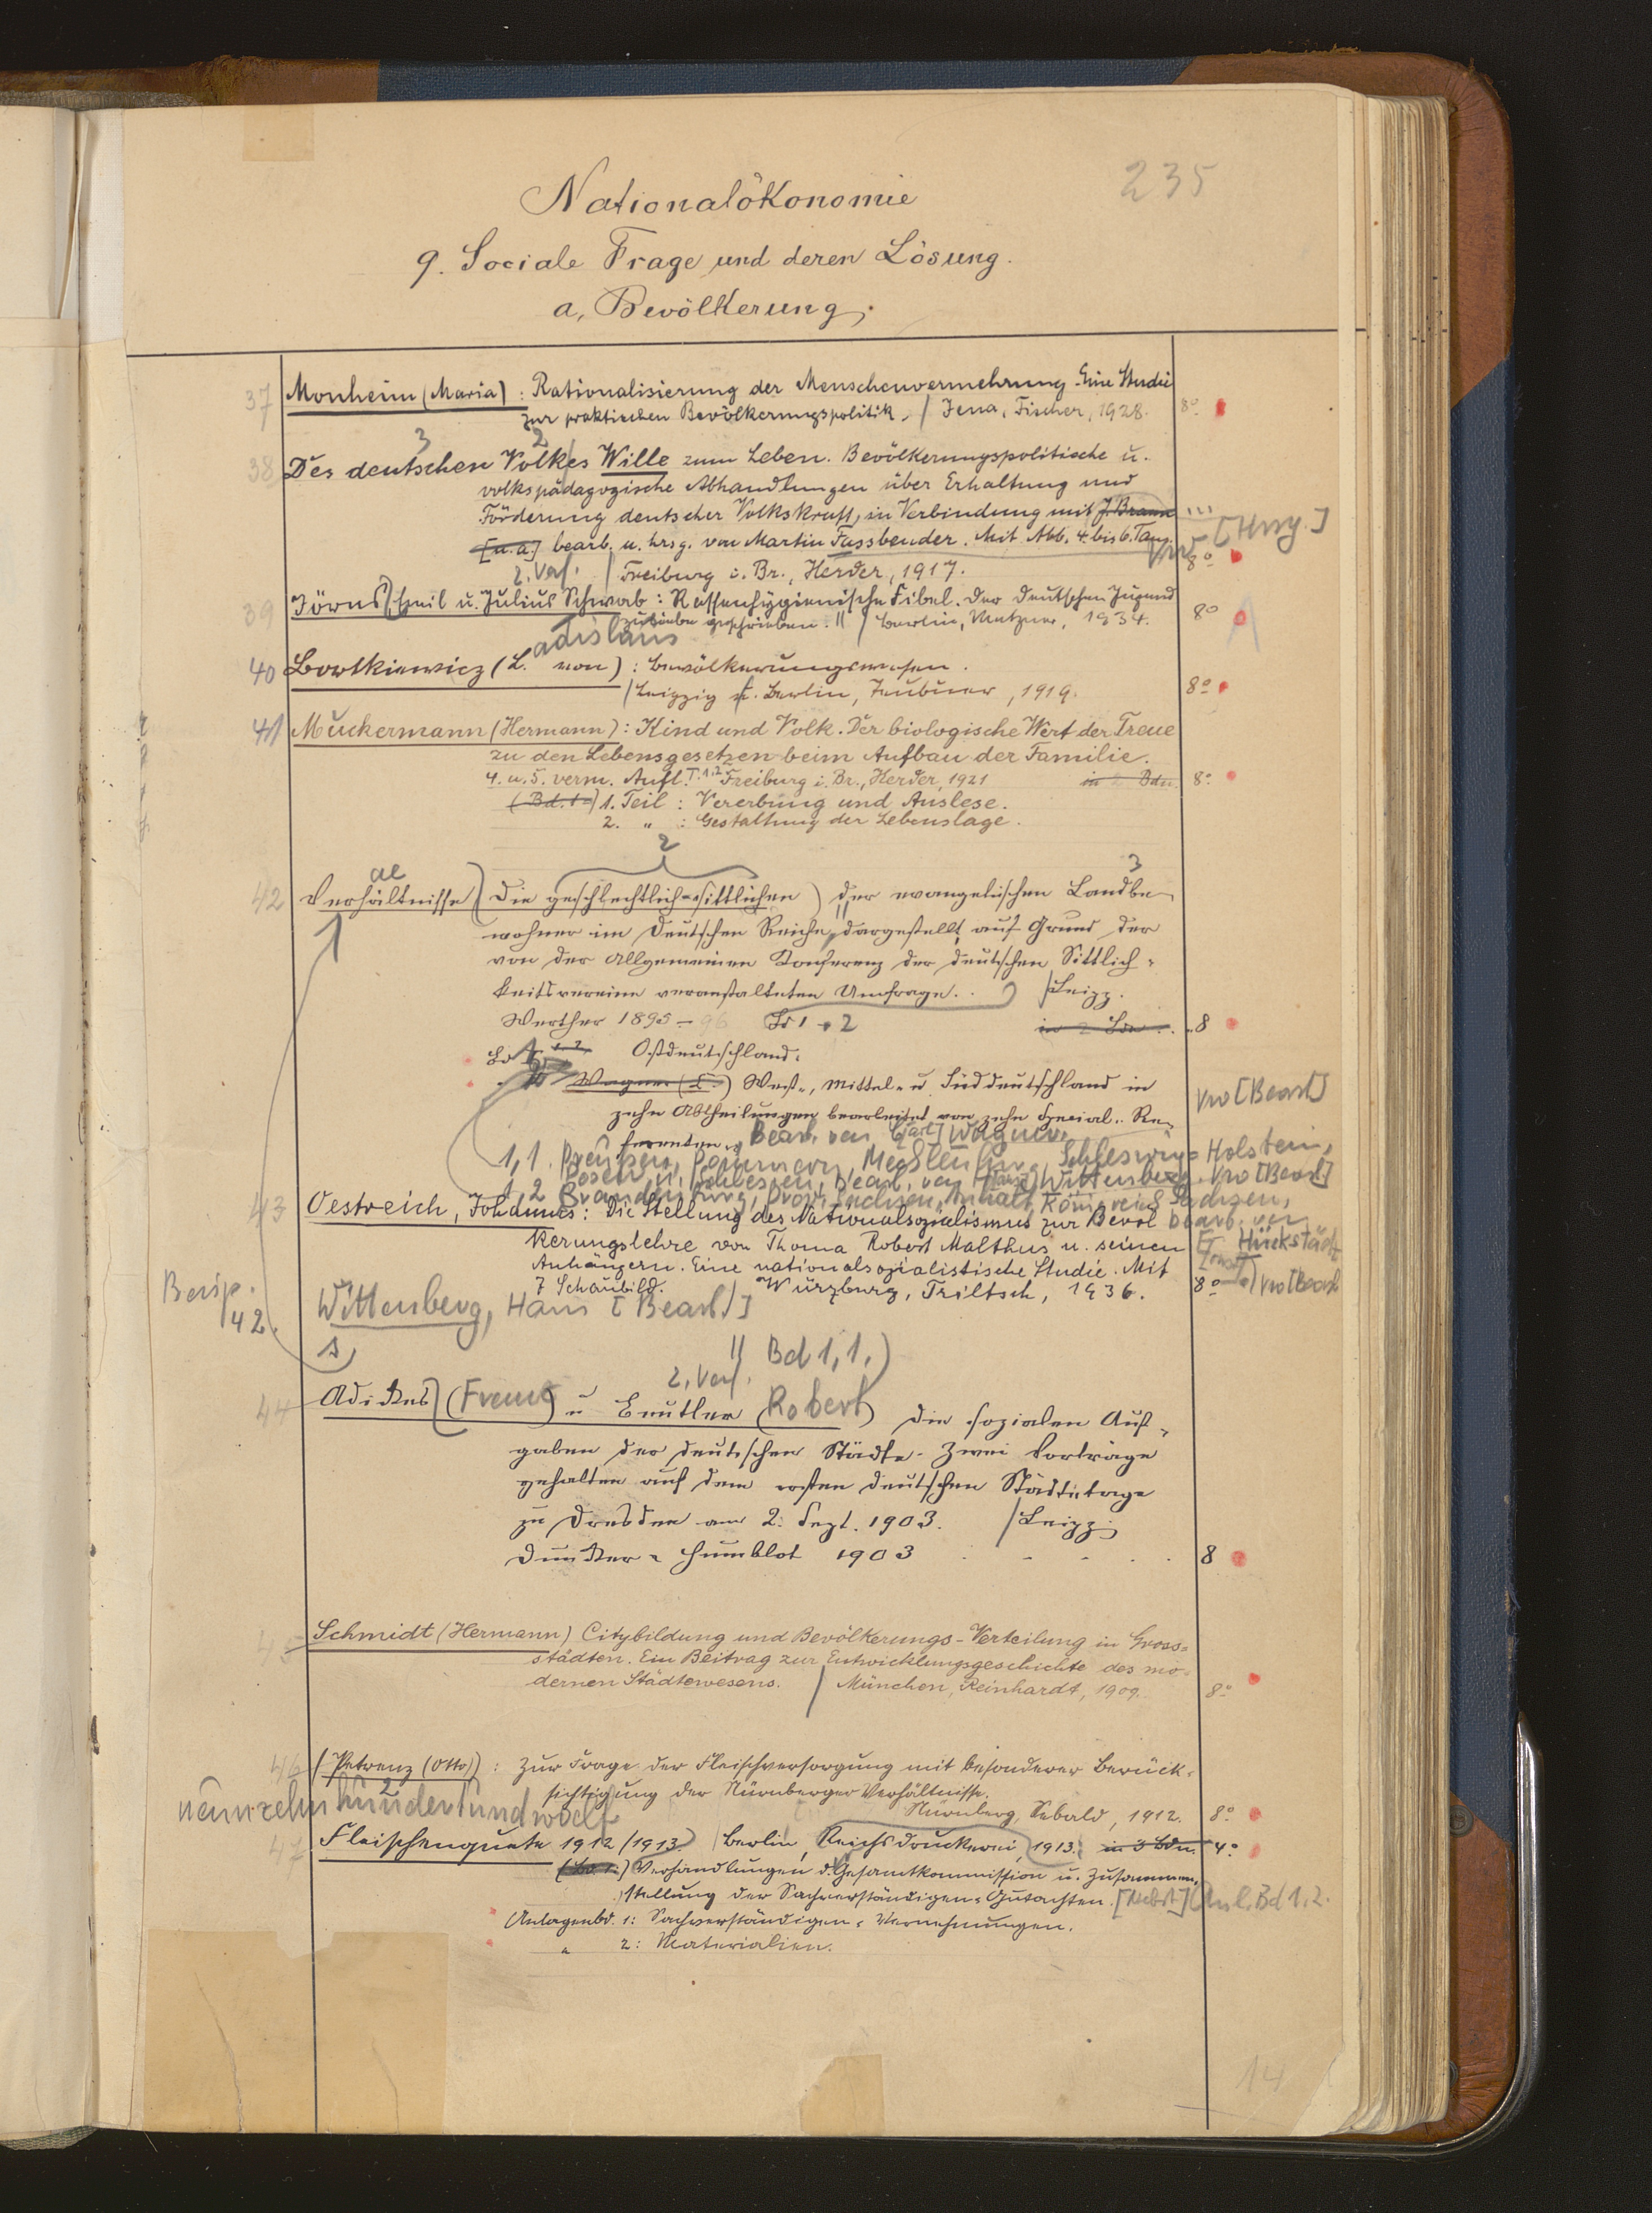 235
Nationalökonomie
9. Sociale Frage und deren Lösung.
a, Bevölkerung.
37 Monheim (Maria): Rationalisierung der Menschenvermehrung. Eine Studie
zur praktischen Bevölkerungspolitik. / Jena, Fischer, 1928. 8°
3 2
38 Des deutschen Volkes Wille zum Leben. Bevölkerungspolitische u.
volkspädagogische Abhandlungen über Erhaltung und
Förderung deutscher Volkskraft, in Verbindung mit J. Braun ...
[u. a.] bearb. u. hrsg. von Martin Fassbender. Mit Abb. 4. bis 6. Taus. [Hrsg.]
2. Verf. / Freiburg i. Br., Herder, 1917. 8°
39 Jörns, Emil u. Julius Schwab: Rassenhygienische Fibel. Der deutschen Jugend
zuliebe geschrieben. // / Berlin, Metzner, 1934. 8°
adislaus
40 Bortkiewicz (L. von): Bevölkerungswesen.
/ Leipzig u. Berlin, Teubner, 1919. 8°
41 Muckermann (Hermann): Kind und Volk. Der biologische Wert der Treue
zu den Lebensgesetzen beim Aufbau der Familie.
4. u. 5. verm. Aufl. T. 1.2 Freiburg i. Br., Herder, 1921 in 2 Bdn. 8°
(Bd. 1=) 1. Teil: Vererbung und Auslese.
2. " : Gestaltung der Lebenslage.
2
ae 3
42 Verhältnisse (Die geschlechtlich-sittlichen) der evangelischen Landbe-
wohner im Deutschen Reiche, dargestellt auf Grund der
von der Allgemeinen Konferenz der deutschen Sittlich-
keitsvereine veranstalteten Umfrage. / Leipz.
Werther 1895-96 Bd 1 + 2 in 2 Bdn. 8
Bd 1. Ostdeutschland.
Wagner (C.) West-, Mittel- u Süddeutschland in
zehn Abtheilungen bearbeitet von zehn Special-Re- Vw [Bearb]
ferenten. Bearb. von C[arl] Wagner.
1,1. Preußen, Pommern, Mecklenburg, Schleswig-Holstein,
Posen u. Schlesien, bearb. von H[ans] Wittenberg. Vw [Bearb]
1,2 Brandenburg, Prov. Sachsen, Anhalt, Königreich Sachsen,
bearb. von
E[rnst] Hückstädt
Vw [Bearb
43 Oestreich, Johannes: Die Stellung des Nationalsozialismus zur Bevöl
kerungslehre von Thoma Robert Malthus u. seinen
Anhängern. Eine nationalsozialistische Studie. Mit
7 Schaubild. Würzburg, Triltsch, 1936. 8°
42.
Wittenberg, Hans [Bearb.]
s // Bd 1,1.)
2. Verf.
44 Adickes (Franz) u Beutler (Robert) Die sozialen Auf-
gaben der deutschen Städte. Zwei Vorträge
gehalten auf dem ersten deutschen Städtetage
zu Dresden am 2. Sept. 1903. / Leipz.
Duncker & Humblot 1903 8
Schmidt (Hermann) Citybildung und Bevölkerungs-Verteilung in Gross-
städten. Ein Beitrag zur Entwicklungsgeschichte des mo-
dernen Städtewesens. / München, Reinhardt, 1909. 8°
46 Petrenz (Otto): Zur Frage der Fleischversorgung mit besonderer Berück-
sichtigung der Nürnberger Verhältnisse.
Nürnberg, Sebald, 1912. 8°
neunzehnhundertundzwölf
2
47 Fleischenquete 1912/1913. / Berlin, Reichsdruckerei, 1913. in 3 Bdn. 4°
(Bd. 1:) Verhandlungen d. Gesamtkommission u. Zusammen-
stellung der Sachverständigen-Gutachten. [Nebst] Anl. Bd 1.2.
Anlagenbd. 1: Sachverständigen-Vernehmungen.
" 2: Materialien.
14